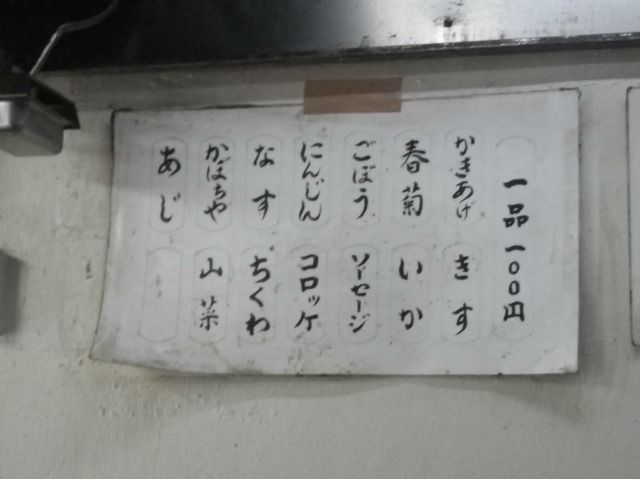 一品一〇〇円
かきあげ
きす
春菊
いか
ごぼう
ソーセージ
にんじん
コロッケ
なす
ちくわ
かぼちゃ
山菜
あじ